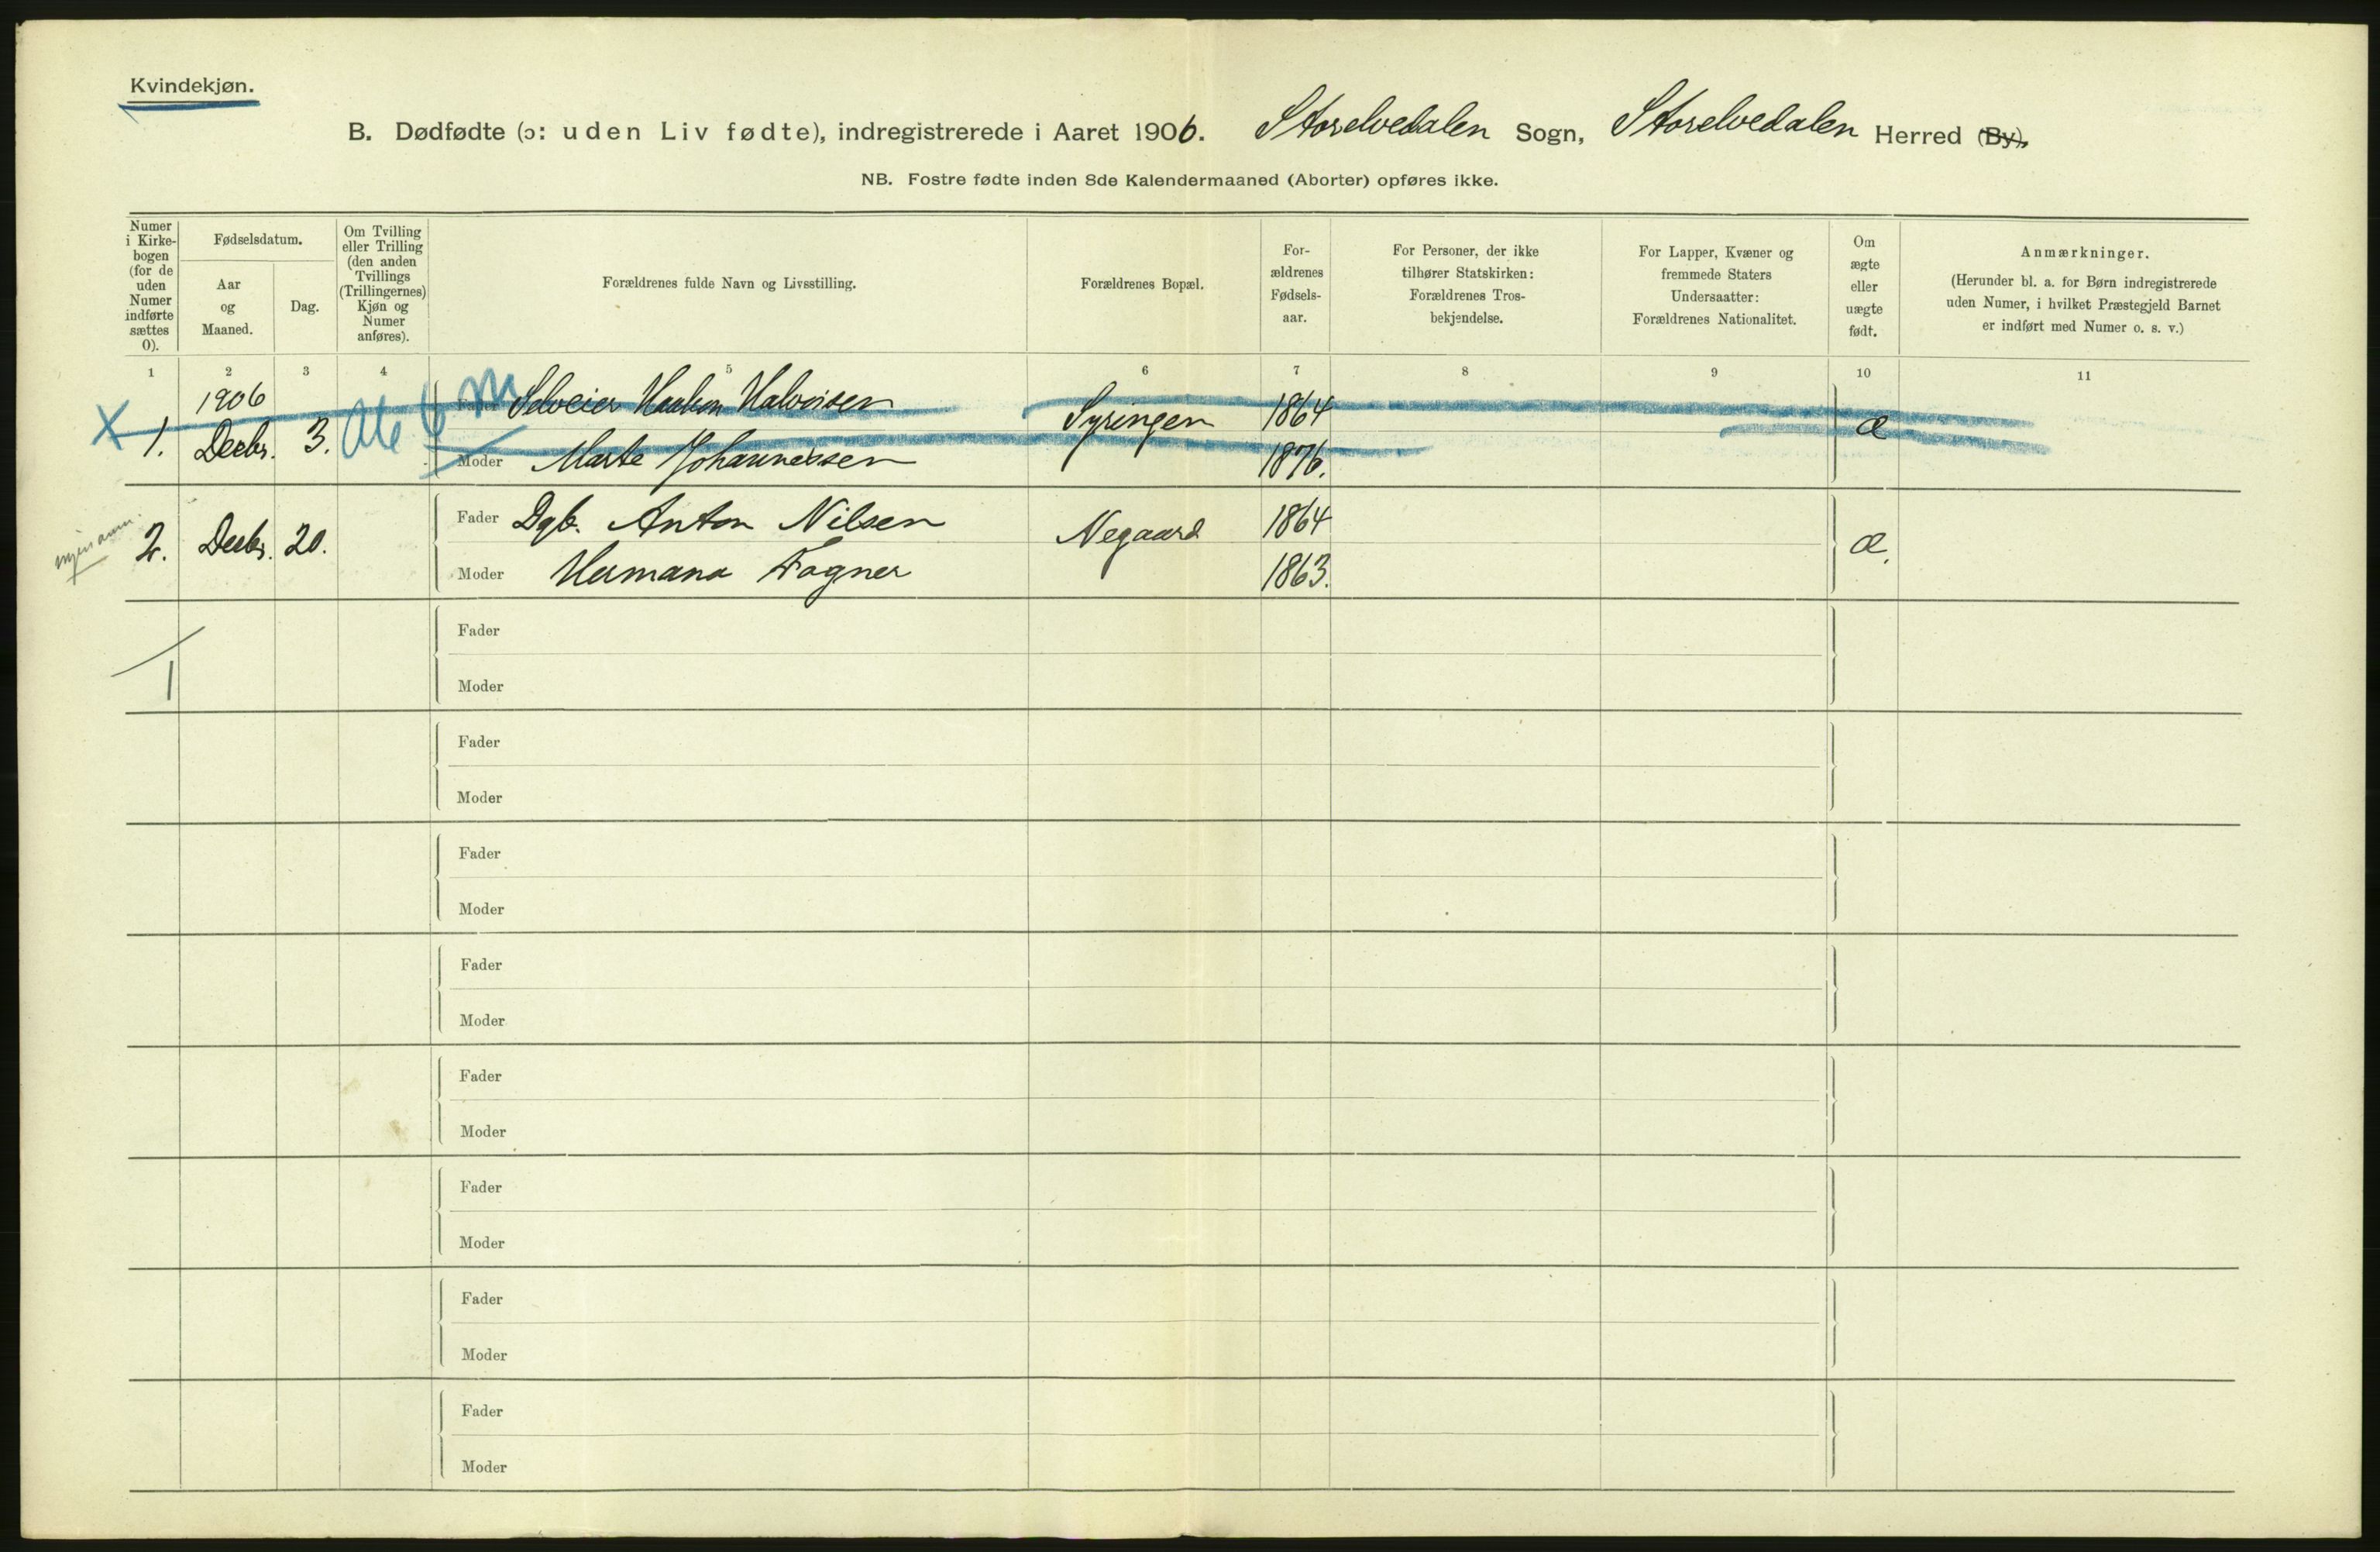 Kvindekjøn.
B. Dødfødte (ɔ: uden Liv fødte), indregistrerede i Aaret 1906. Storelvedalen Sogn, Storelvedalen Herred (By).
NB. Fostre fødte inden 8de Kalendermaaned (Aborter) opføres ikke.
Numer i Kirke-bogen (for de uden Numer indførte sættes 0).
Fødselsdatum.
Aar og Maaned.
Dag.
Om Tvilling eller Trilling (den anden Tvillings (Trillingernes) Kjøn og Numer anføres).
Forældrenes fulde Navn og Livsstilling.
Forældrenes Bopæl.
For-ældrenes Fødsels-aar.
For Personer, der ikke tilhører Statskirken: Forældrenes Tros-bekjendelse.
For Lapper, Kvæner og fremmede Staters Undersaatter: Forældrenes Nationalitet.
Om ægte eller uægte født.
Anmærkninger.
(Herunder bl. a. for Børn indregistrerede uden Numer, i hvilket Præstegjeld Barnet er indført med Numer o. s. v.)
1 2 3 4 5 6 7 8 9 10 11
1906
X 1. Decbr. 3. Fader Selveier Haakon Halvorsen Syringen 1864 æ
Moder Marte Johannessen 1876.
2. Decbr. 20. Fader Dgb. Anton Nilsen Negaard 1864 æ.
Moder Hermana Fagner 1863.
Fader
1
Moder
Fader
Moder
Fader
Moder
Fader
Moder
Fader
Moder
Fader
Moder
Fader
Moder
Fader
Moder